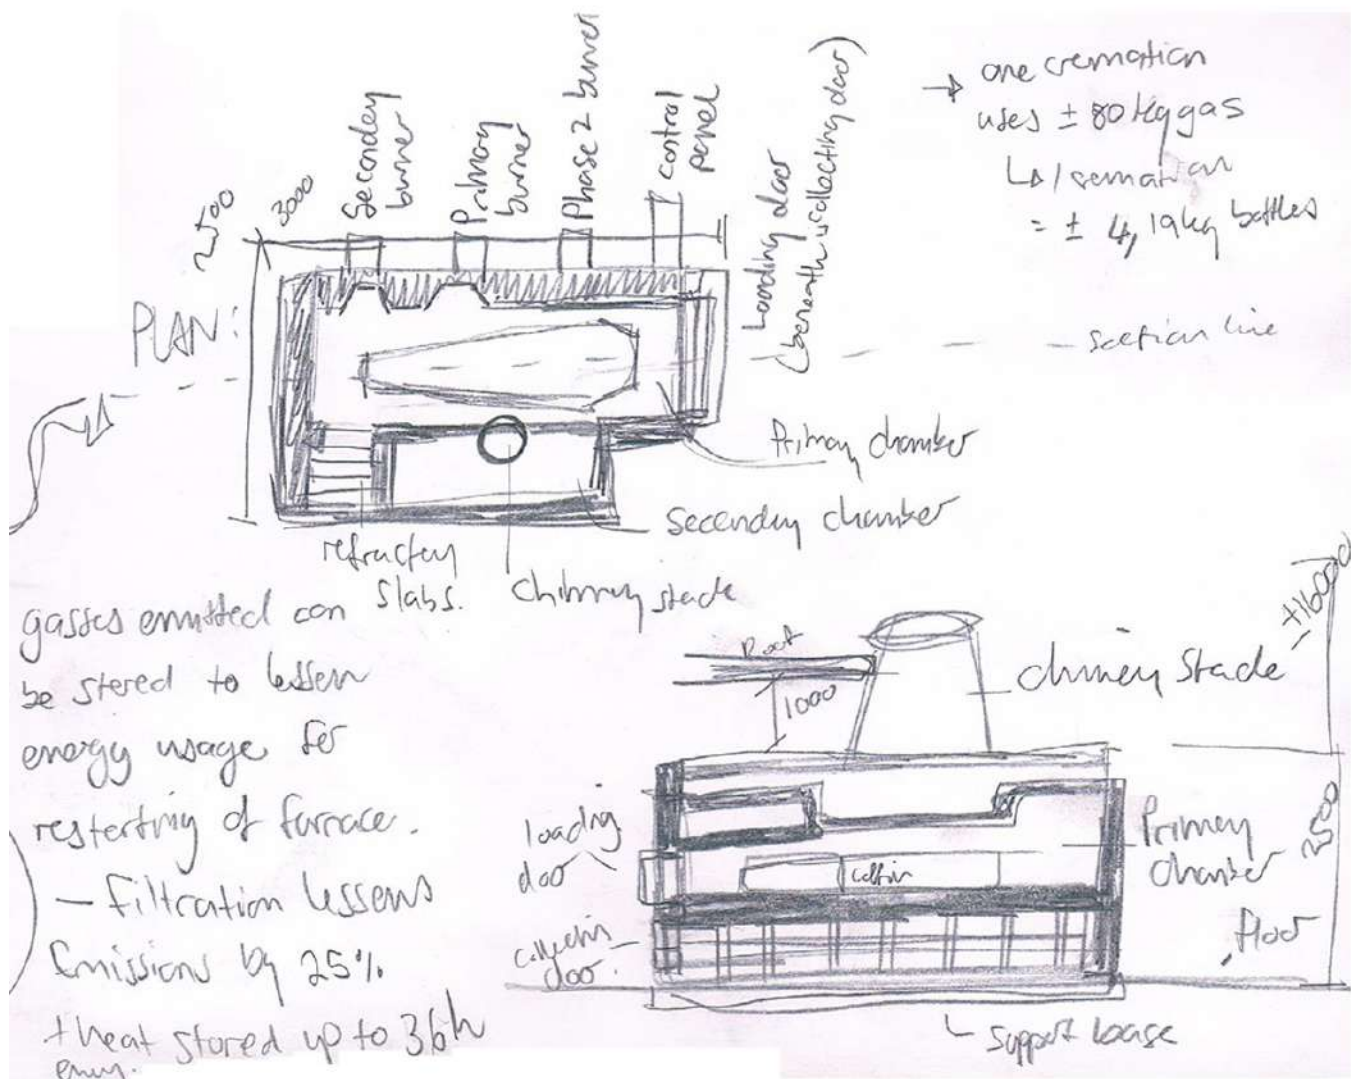 2500
3000
Secondey
burner
Primary
burner
Phase 2 burner
control
panel
Loading door
(beneath is collecting door)
→ one cremation
uses ± 80 kg gas
↳ 1 cremation
= ± 4, 19kg bottles
PLAN:
section line
Primary chamber
Secondary chamber
refractory
slabs.
Chimney stack
gasses emitted can
be stored to lessen
energy usage for
restarting of furnace.
— Filtration lessens
Emissions by 25%
+ heat stored up to 36h
Roof
1000
chimney stack
±16000
loading
door
coffin
Primary
chamber
2500
collecting
door
floor
support base